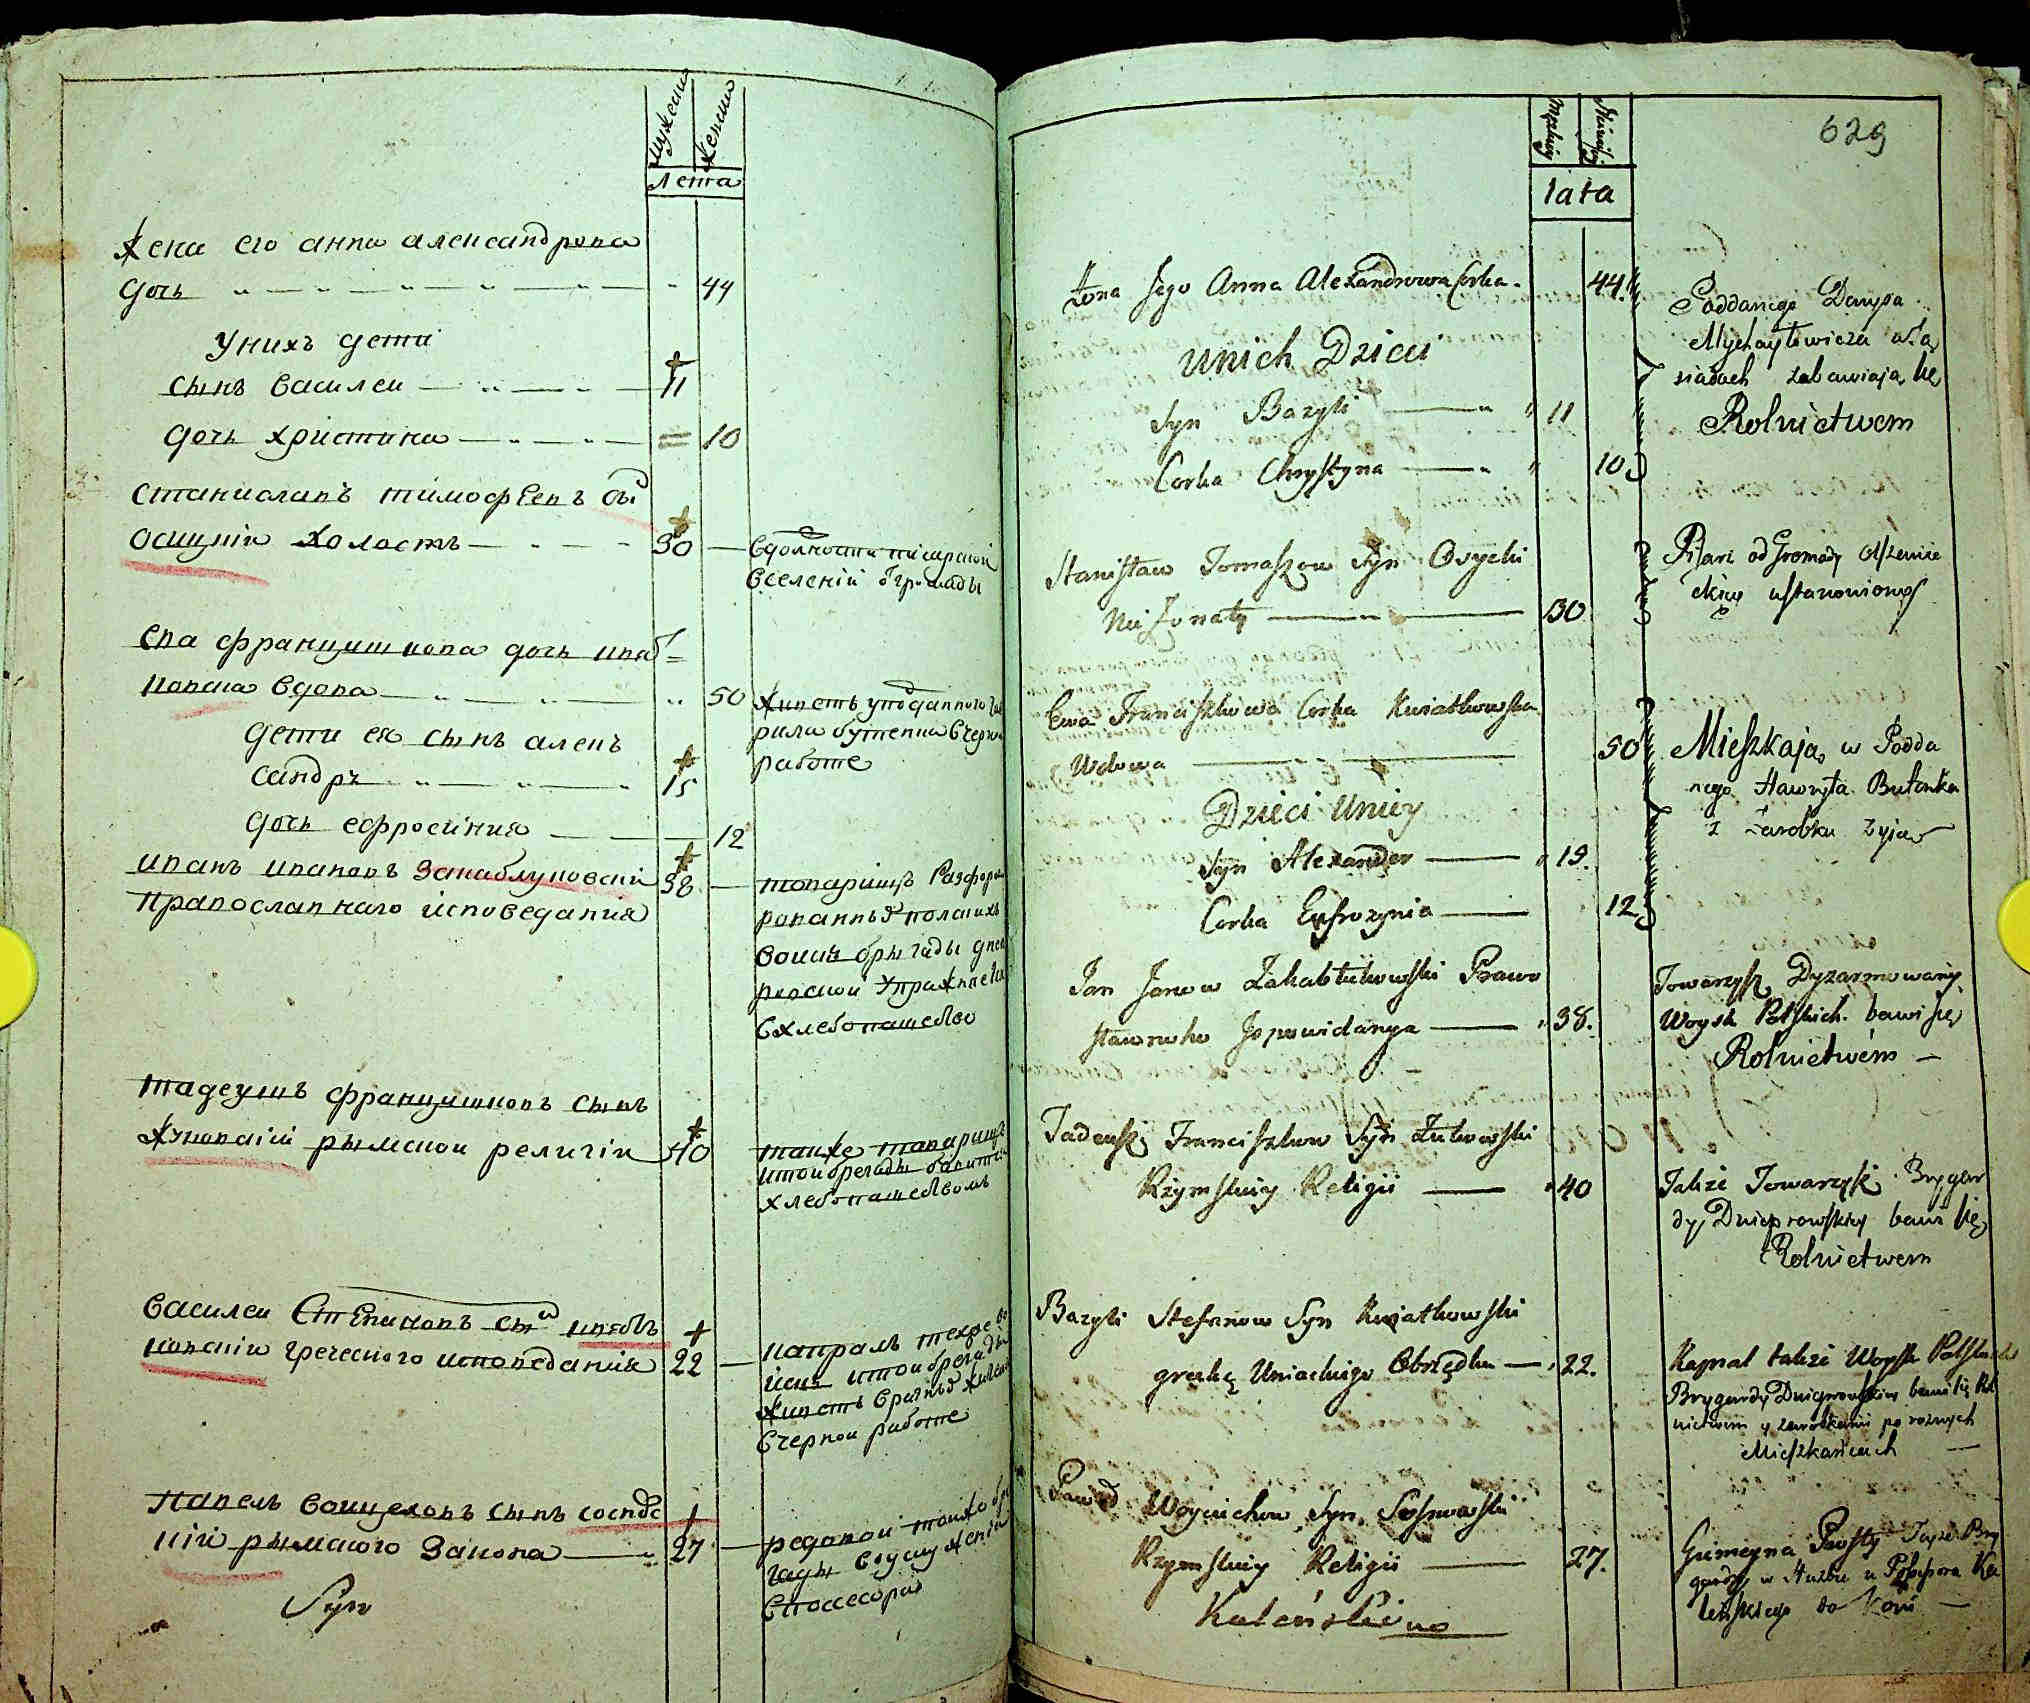 мужеска
женска
Лета
жена его анна александрова
дочь 44
у нихъ дети
сынъ василеи 11
дочь христина 10
станиславъ тимофеевъ сы
осицкіи холостъ 30
в должности писарской
в селеніи от громады
ева францишкова дочь квят=
ковска вдова 50
живетъ у подданного гав
рила бутенка в черно
работе
дети ея сынъ алек
сандръ 15
дочь ефросиния 12
иванъ ивановъ закаблуковскіи 38
православнаго исповедания
товарищъ Разформи
рованныхъ полскихъ
воискъ брыгады днеп
ровской упражняется
в хлебопашество
тадеушъ францишковъ сынъ
жуковскій рымскои религіи 40
также товарищъ
итои брегады бавится
хлебопашествомъ
василеи Степановъ сынъ квятъ
ковскіи греческого исповеданія 22
капралъ техже во
искъ итои брегады
живетъ в разныхъ жилцовъ
в чернои работе
павелъ воицеховъ сынъ соснов
скій рымского закона 27
редовой тойжо бре
гады в услужении
в поссесора
Syn
629
Męskiey
Żeńskiey
lata
Żona Jego Anna Alexandrowa Corka 44
Poddanego Denysa
Mychayłowicza w Są
siadach zabawiają się
Rolnictwem
Unich Dzieci
Syn Bazyli 11
Corka Chrystyna 10
Stanisław Tomaszow Syn Osycki
Nie Żonaty 30
Pisarz od Gromady Olszenic
ckiey ustanowiony
Ewa Franciszkowa Corka Kwiatkowska
Wdowa 50
Mieszkają w Podda
nego Hawryła Butenka
z Zarobku żyją
Dzieci Uniey
Syn Alexander 15.
Corka Eufrozynia 12
Jan Janow Zakabłukowski Prawo
sławnoho Ispowidanya 38.
Towarzysz Dyzarmowany
Woysk Polskich bawi się
Rolnictwem
Tadeusz Franciszkow Syn Żukowski
Rzymskiey Religii 40
Takze Towarzysz Brygar
dy Dnieprowskiey bawi się
Rolnictwem
Bazyli Stefanow Syn Kwiatkowski
grecko Uniackiego Obrzędku 22.
Kapral takze Woysk Polskich
Brygardy Dnieprowskiey bawi się Rol
nictwem y zarobkami po roznych
Mieszkańcach
Paweł Woyciechow Syn Sosnowski
Rzymskiey Religii 27.
Gemeyna Prosty Teyze Bry
gardy w Służbie u Possesora Ka
leńskiego do Koni
Kaleńskiego